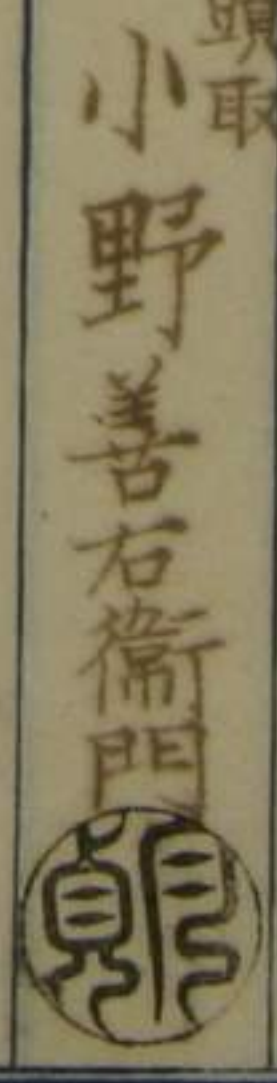 頭取
小野善右衛門